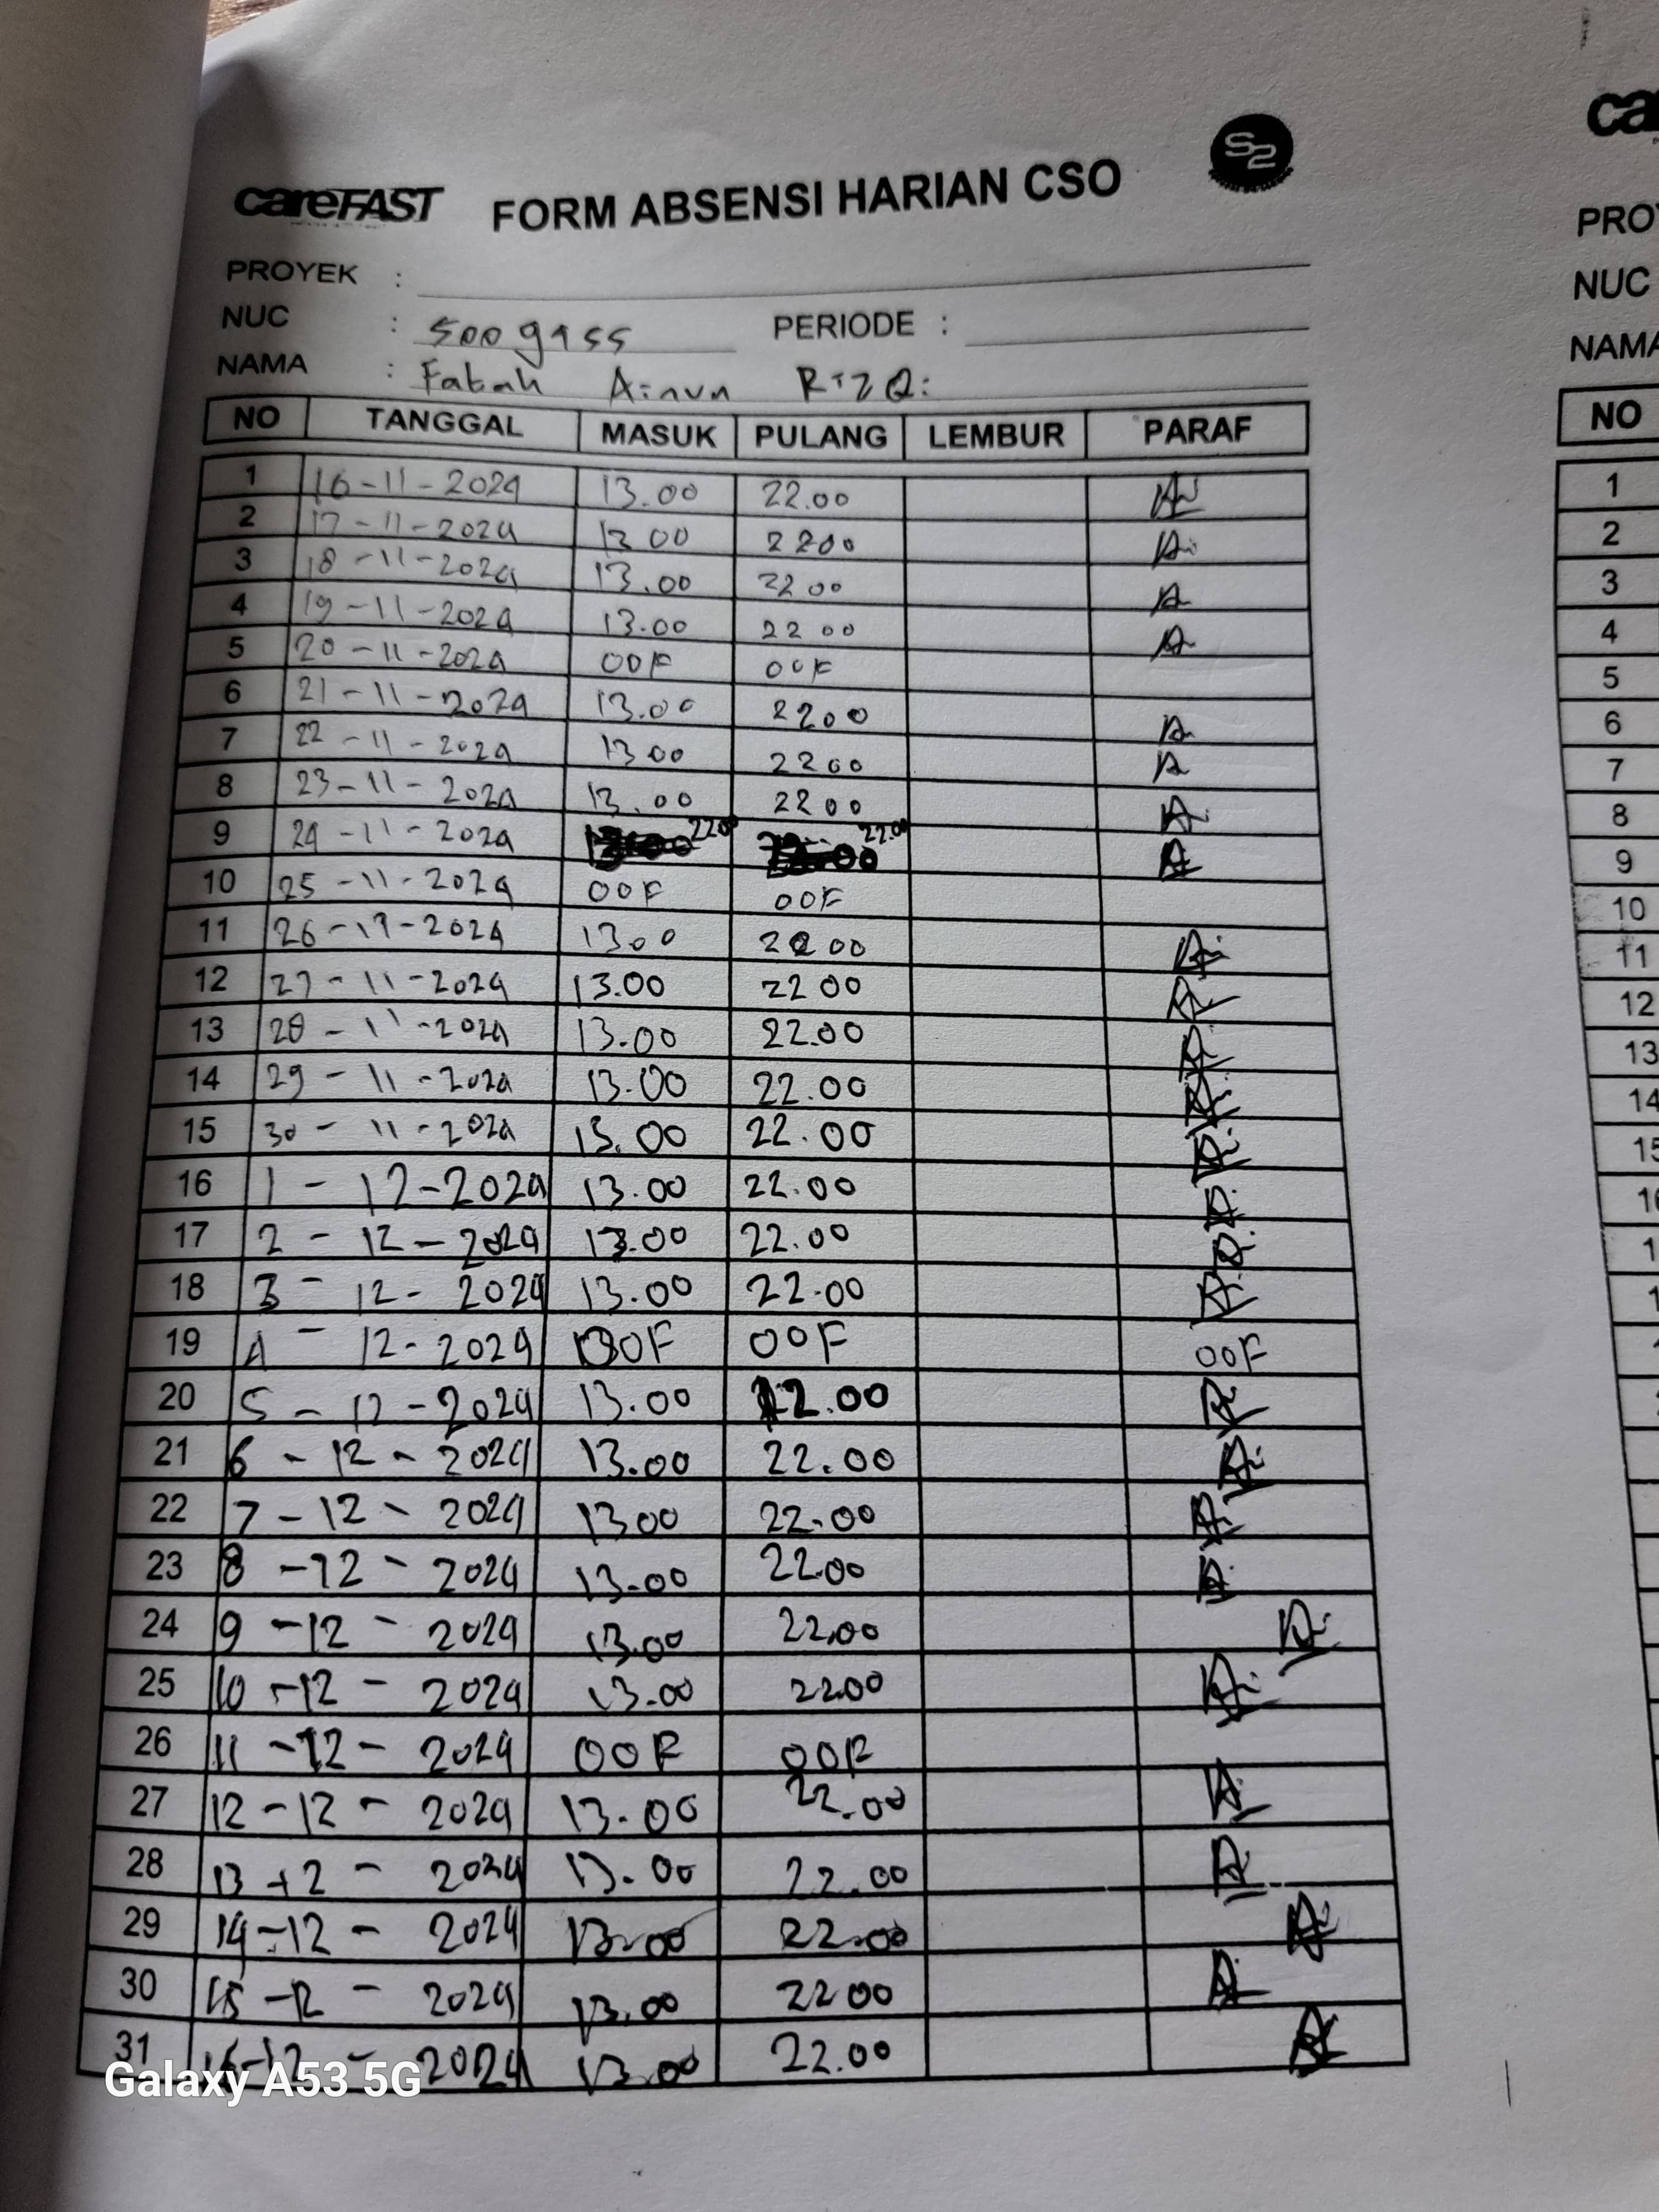 careFAST FORM ABSENSI HARIAN CSO S2
PROYEK :
NUC : 5009955 PERIODE :
NAMA : Fatah Ainun RizQi
NO TANGGAL MASUK PULANG LEMBUR PARAF
1 16-11-2024 13.00 22.00
2 17-11-2024 13 00 22 00
3 18-11-2024 13.00 22 00
4 19-11-2024 13.00 22 00
5 20-11-2024 OOF OOF
6 21-11-2024 13.00 22 00
7 22-11-2024 13 00 22 00
8 23-11-2024 13.00 22 00
9 24-11-2024 22.00 22.00
10 25-11-2024 OOF OOF
11 26-11-2024 13 00 22 00
12 27-11-2024 13.00 22 00
13 28-11-2024 13.00 22.00
14 29-11-2024 13.00 22.00
15 30-11-2024 13.00 22.00
16 1-12-2024 13.00 22.00
17 2-12-2024 13.00 22.00
18 3-12-2024 13.00 22.00
19 4-12-2024 OOF OOF OOF
20 5-12-2024 13.00 22.00
21 6-12-2024 13.00 22.00
22 7-12-2024 13 00 22.00
23 8-12-2024 13.00 22.00
24 9-12-2024 13.00 22.00
25 10-12-2024 13.00 22.00
26 11-12-2024 OOF OOF
27 12-12-2024 13.00 22.00
28 13-12-2024 13.00 22.00
29 14-12-2024 13.00 22.00
30 15-12-2024 13.00 22 00
31 16-12-2024 13.00 22.00
Galaxy A53 5G
PROY
NUC
NAMA
NO
1
2
3
4
5
6
7
8
9
10
11
12
13
14